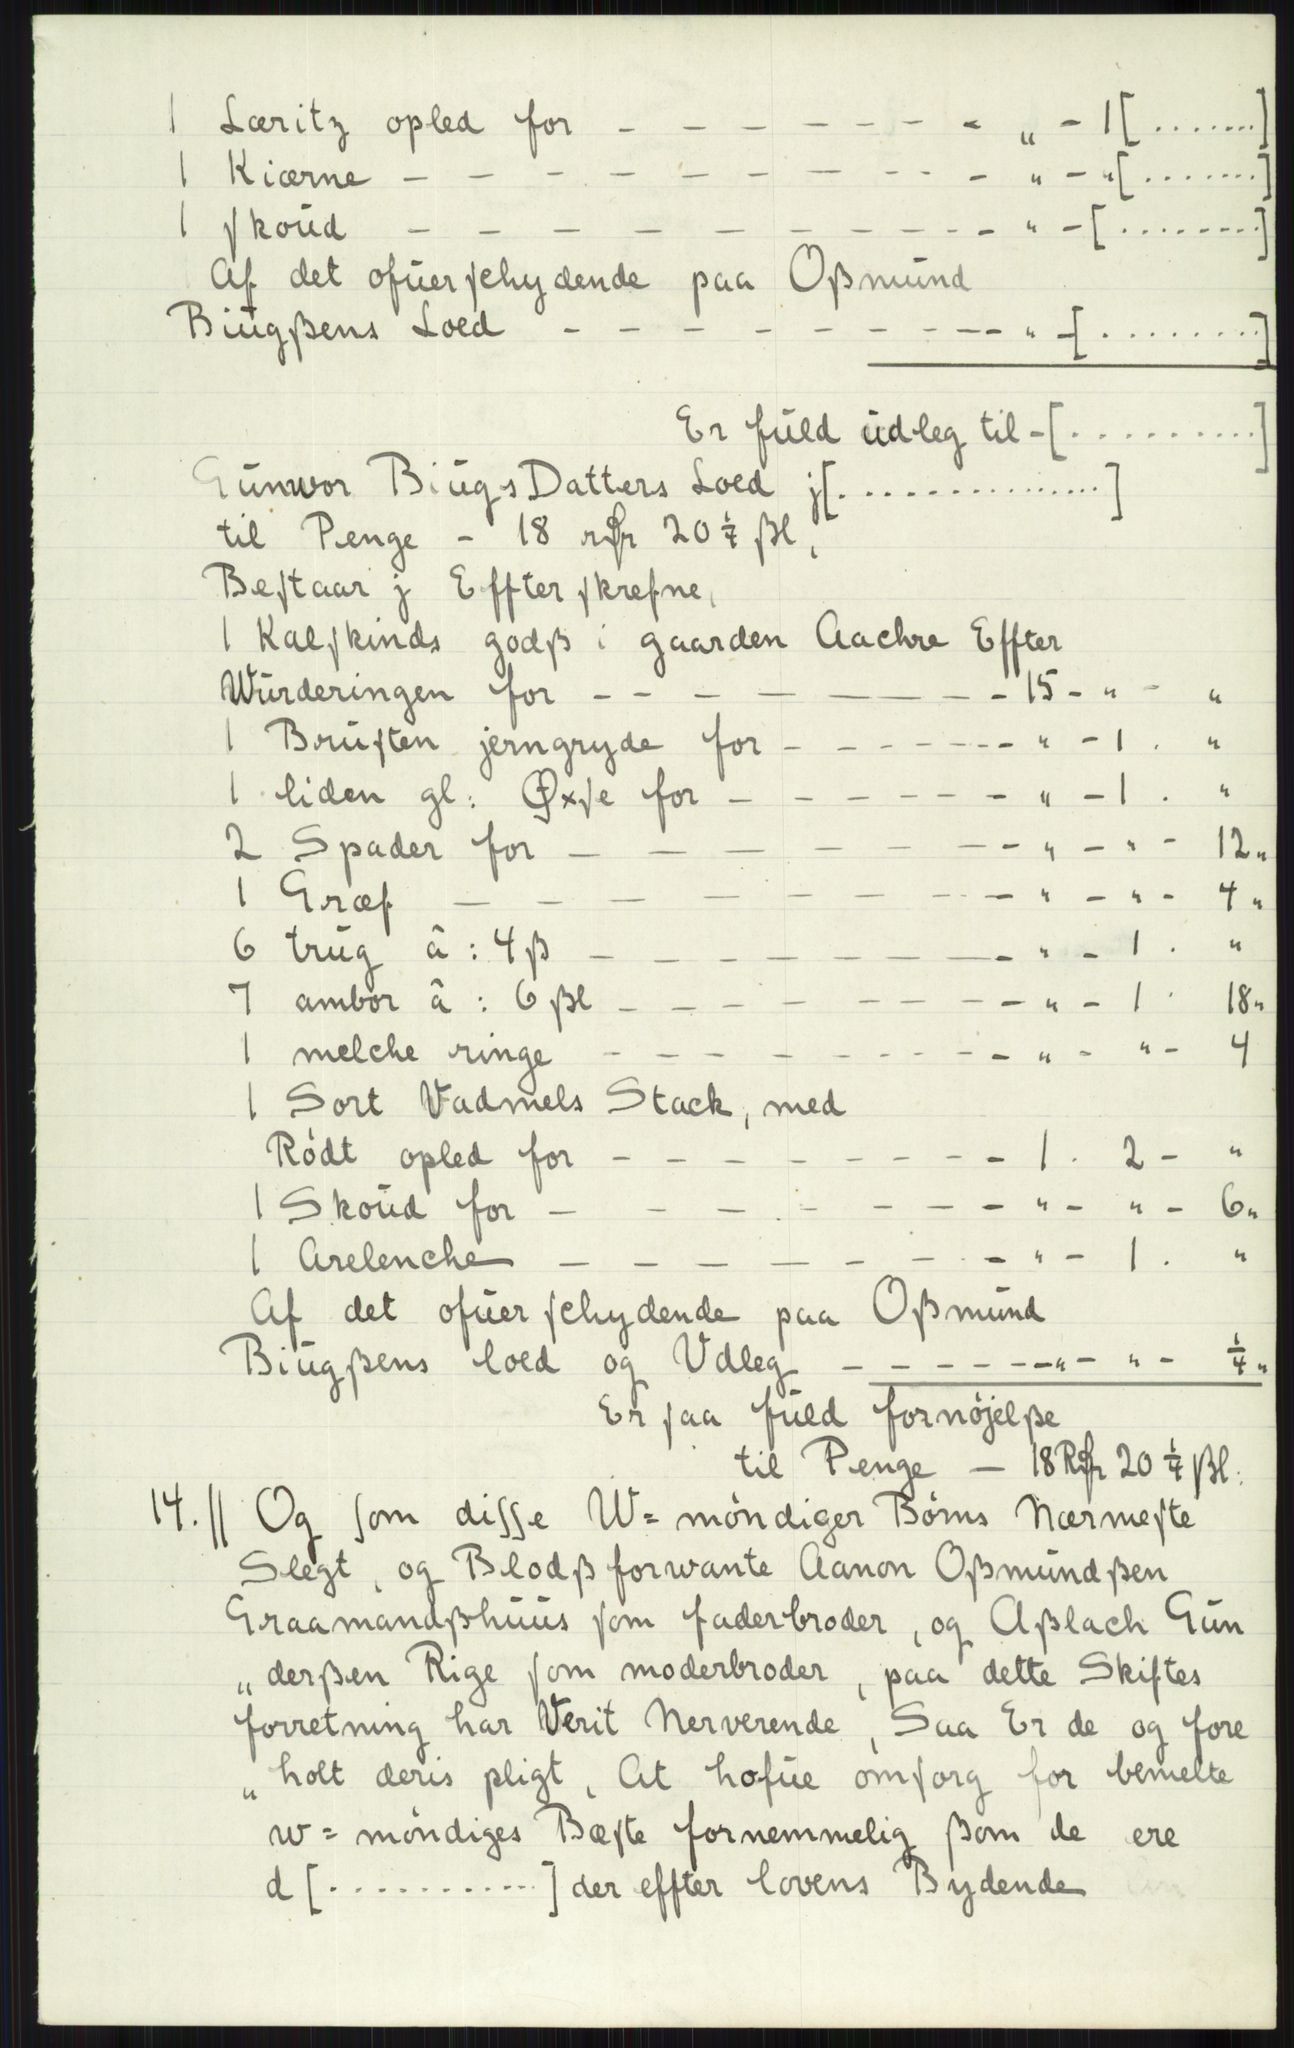 1 Læritz opled for - - - - - - - - „ - 1 [.......]
1 Kiærne - - - - - - - - - - - „ - „ [.......]
1 skoüd - - - - - - - - - - - „ - [........]
Af det ofüerschydende paa Oßmünd
Biügßens Loed - - - - - - - - - - „ - [........]
Er füld üdleg til - [..........]
Günvor Biügs Datters Loed j [...............]
til Penge - 18 rdr 20 1/4 ßl,
Bestaar j Effterskrefne,
1 Kalfskinds godß i gaarden Aachre Effter
Würderingen for - - - - - - - - 15 - „ - „
1 Brüsten jerngryde for - - - - - - - „ - 1 . „
1 liden gl: Øxse for - - - - - - - „ - 1 . „
2 Spader for - - - - - - - - „ - „ - 12 „
1 Græf - - - - - - - - - „ - „ - 4 „
6 trüg â : 4 ß - - - - - - - - „ - 1 . „
7 ambor â : 6 ßl - - - - - - - - „ - 1 . 18 „
1 melche ringe - - - - - - - - - „ - „ - 4
1 Sort Vadmels Stack, med
Rödt opled for - - - - - - - - - 1 . 2 - „
1 Skoüd for - - - - - - - - „ - „ - 6 „
1 Arelenche - - - - - - - - „ - 1 . „
Af det ofüerschydende paa Oßmünd
Biügßens loed og Vdleg - - - - - - - „ - „ - 1/4 „
Er saa füld fornöjelße
til Penge - 18 Rdr 20 1/4 ßl.
14. // Og som disse W= möndiger Börns Nærmeste
Slegt, og Blodß forwante Aanon Oßmündßen
Graamandßhüüs som faderbroder, og Aßlach Gün
„ derßen Rige som moderbroder, paa dette Skiftes
forretning har Verit Nerverende, Saa Er de og fore
„ holt deris pligt, At hafüe omsorg for bemelte
w= möndiges Bæste fornemmelig ßom de ere
d [............] der effter lovens Bydende